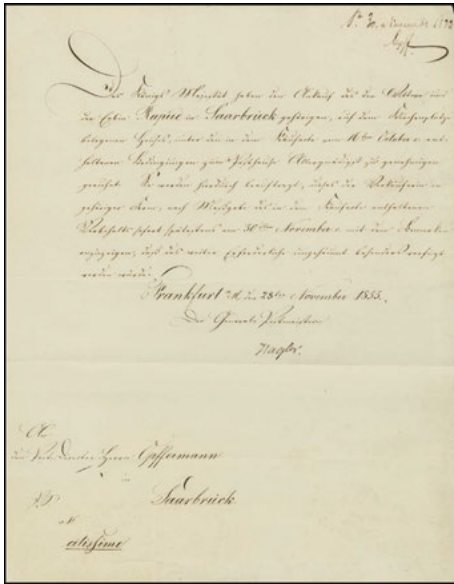 Des Königs Majestät haben den Ankauf des der Wittwe und
den Erben Rupied in Saarbrück gehörigen, auf dem
belegenen Hauses, unter den in dem Kaufacte vom 16ten October c. ent-
haltenen Bedingungen zum Posthause Allergnädigst zu genehmigen
geruhet. Sie werden hierdurch beauftragt, dieses der Verkäuferin in
gehöriger Form, nach Maßgabe des in dem Kaufacte enthaltenen
Vorbehalts spätestens am 30ten November c. mit dem Bemerken
anzuzeigen, daß das weitere Erforderliche ungesäumt besonders verfügt
werden würde.
Frankfurt a/M. den 28ten November 1833.
Der General Postmeister
Nagler.
An
den Post-Director Herrn Opffermann
in
Saarbrück
citissime